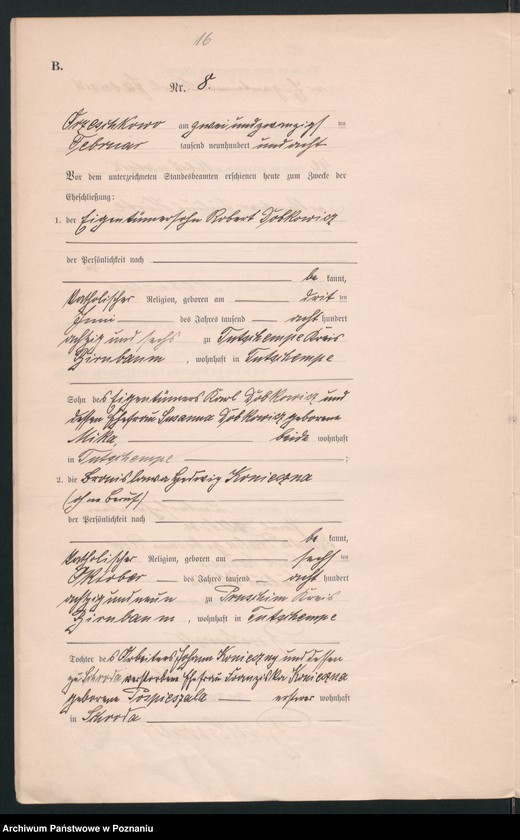 16
B.
Nr. 8.
Orzeschkowo am zweiundzwanzigs ten
Februar tausend neunhundert und acht
Vor dem unterzeichneten Standesbeamten erschienen heute zum Zwecke der
Eheschließung:
1. der Eigentümersohn Robert Dobkowicz
der Persönlichkeit nach
be kannt,
katholischer Religion, geboren am drit ten
Juni des Jahres tausend acht hundert
achzig und sechs zu Tutschempe Kreis
Birnbaum, wohnhaft in Tutschempe
Sohn des Eigentümers Karl Dobkowicz und
dessen Ehefrau Susanna Dobkowicz geborene
Mika, beide wohnhaft
in Tutschempe ;
2. die Bronislawa Hedwig Konieczna
(ohne Beruf)
der Persönlichkeit nach
be kannt,
katholischer Religion, geboren am sechs ten
Oktober des Jahres tausend acht hundert
achzig und neun zu Prusim Kreis
Birnbaum, wohnhaft in Tutschempe
Tochter des Arbeiters Johann Konieczny und dessen
zu Schroda verstorbene Ehefrau Franziska Konieczna
geborene Pospieszala ersterer wohnhaft
in Schroda
Archiwum Państwowe w Poznaniu